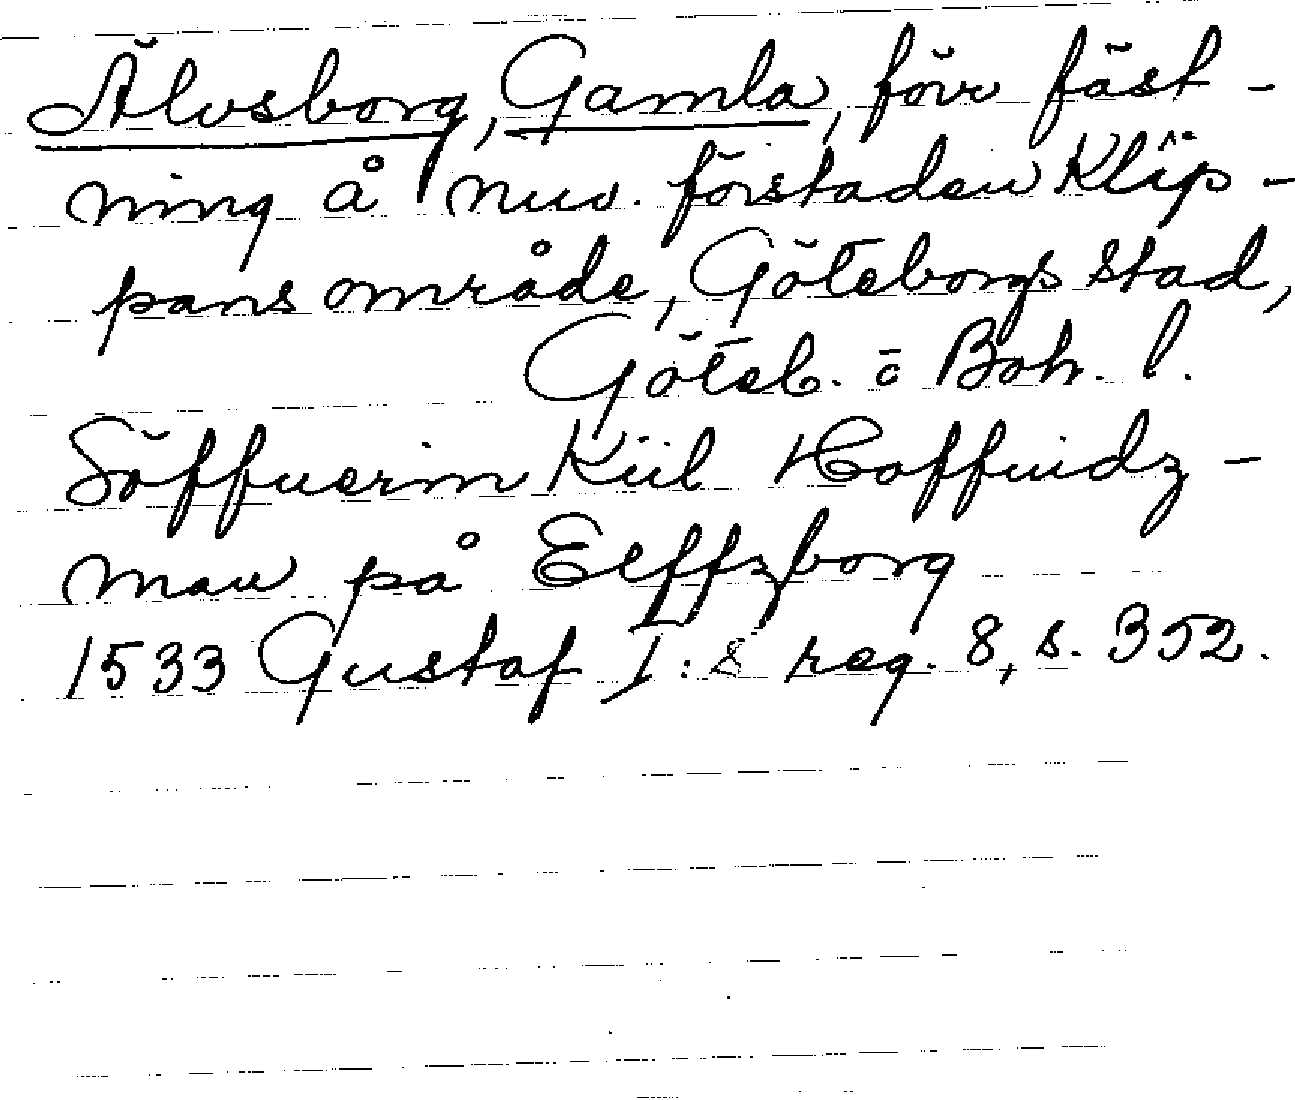 Älvsborg, Gamla, förr fäst-
ning å nuv. förstaden Klip-
pans område, Göteborgs stad,
Göteb. o Boh. l.
Söffuerin Kiil Hoffuidz-
man på Elffzborg
1533 Gustaf I:s reg. 8, s. 352.